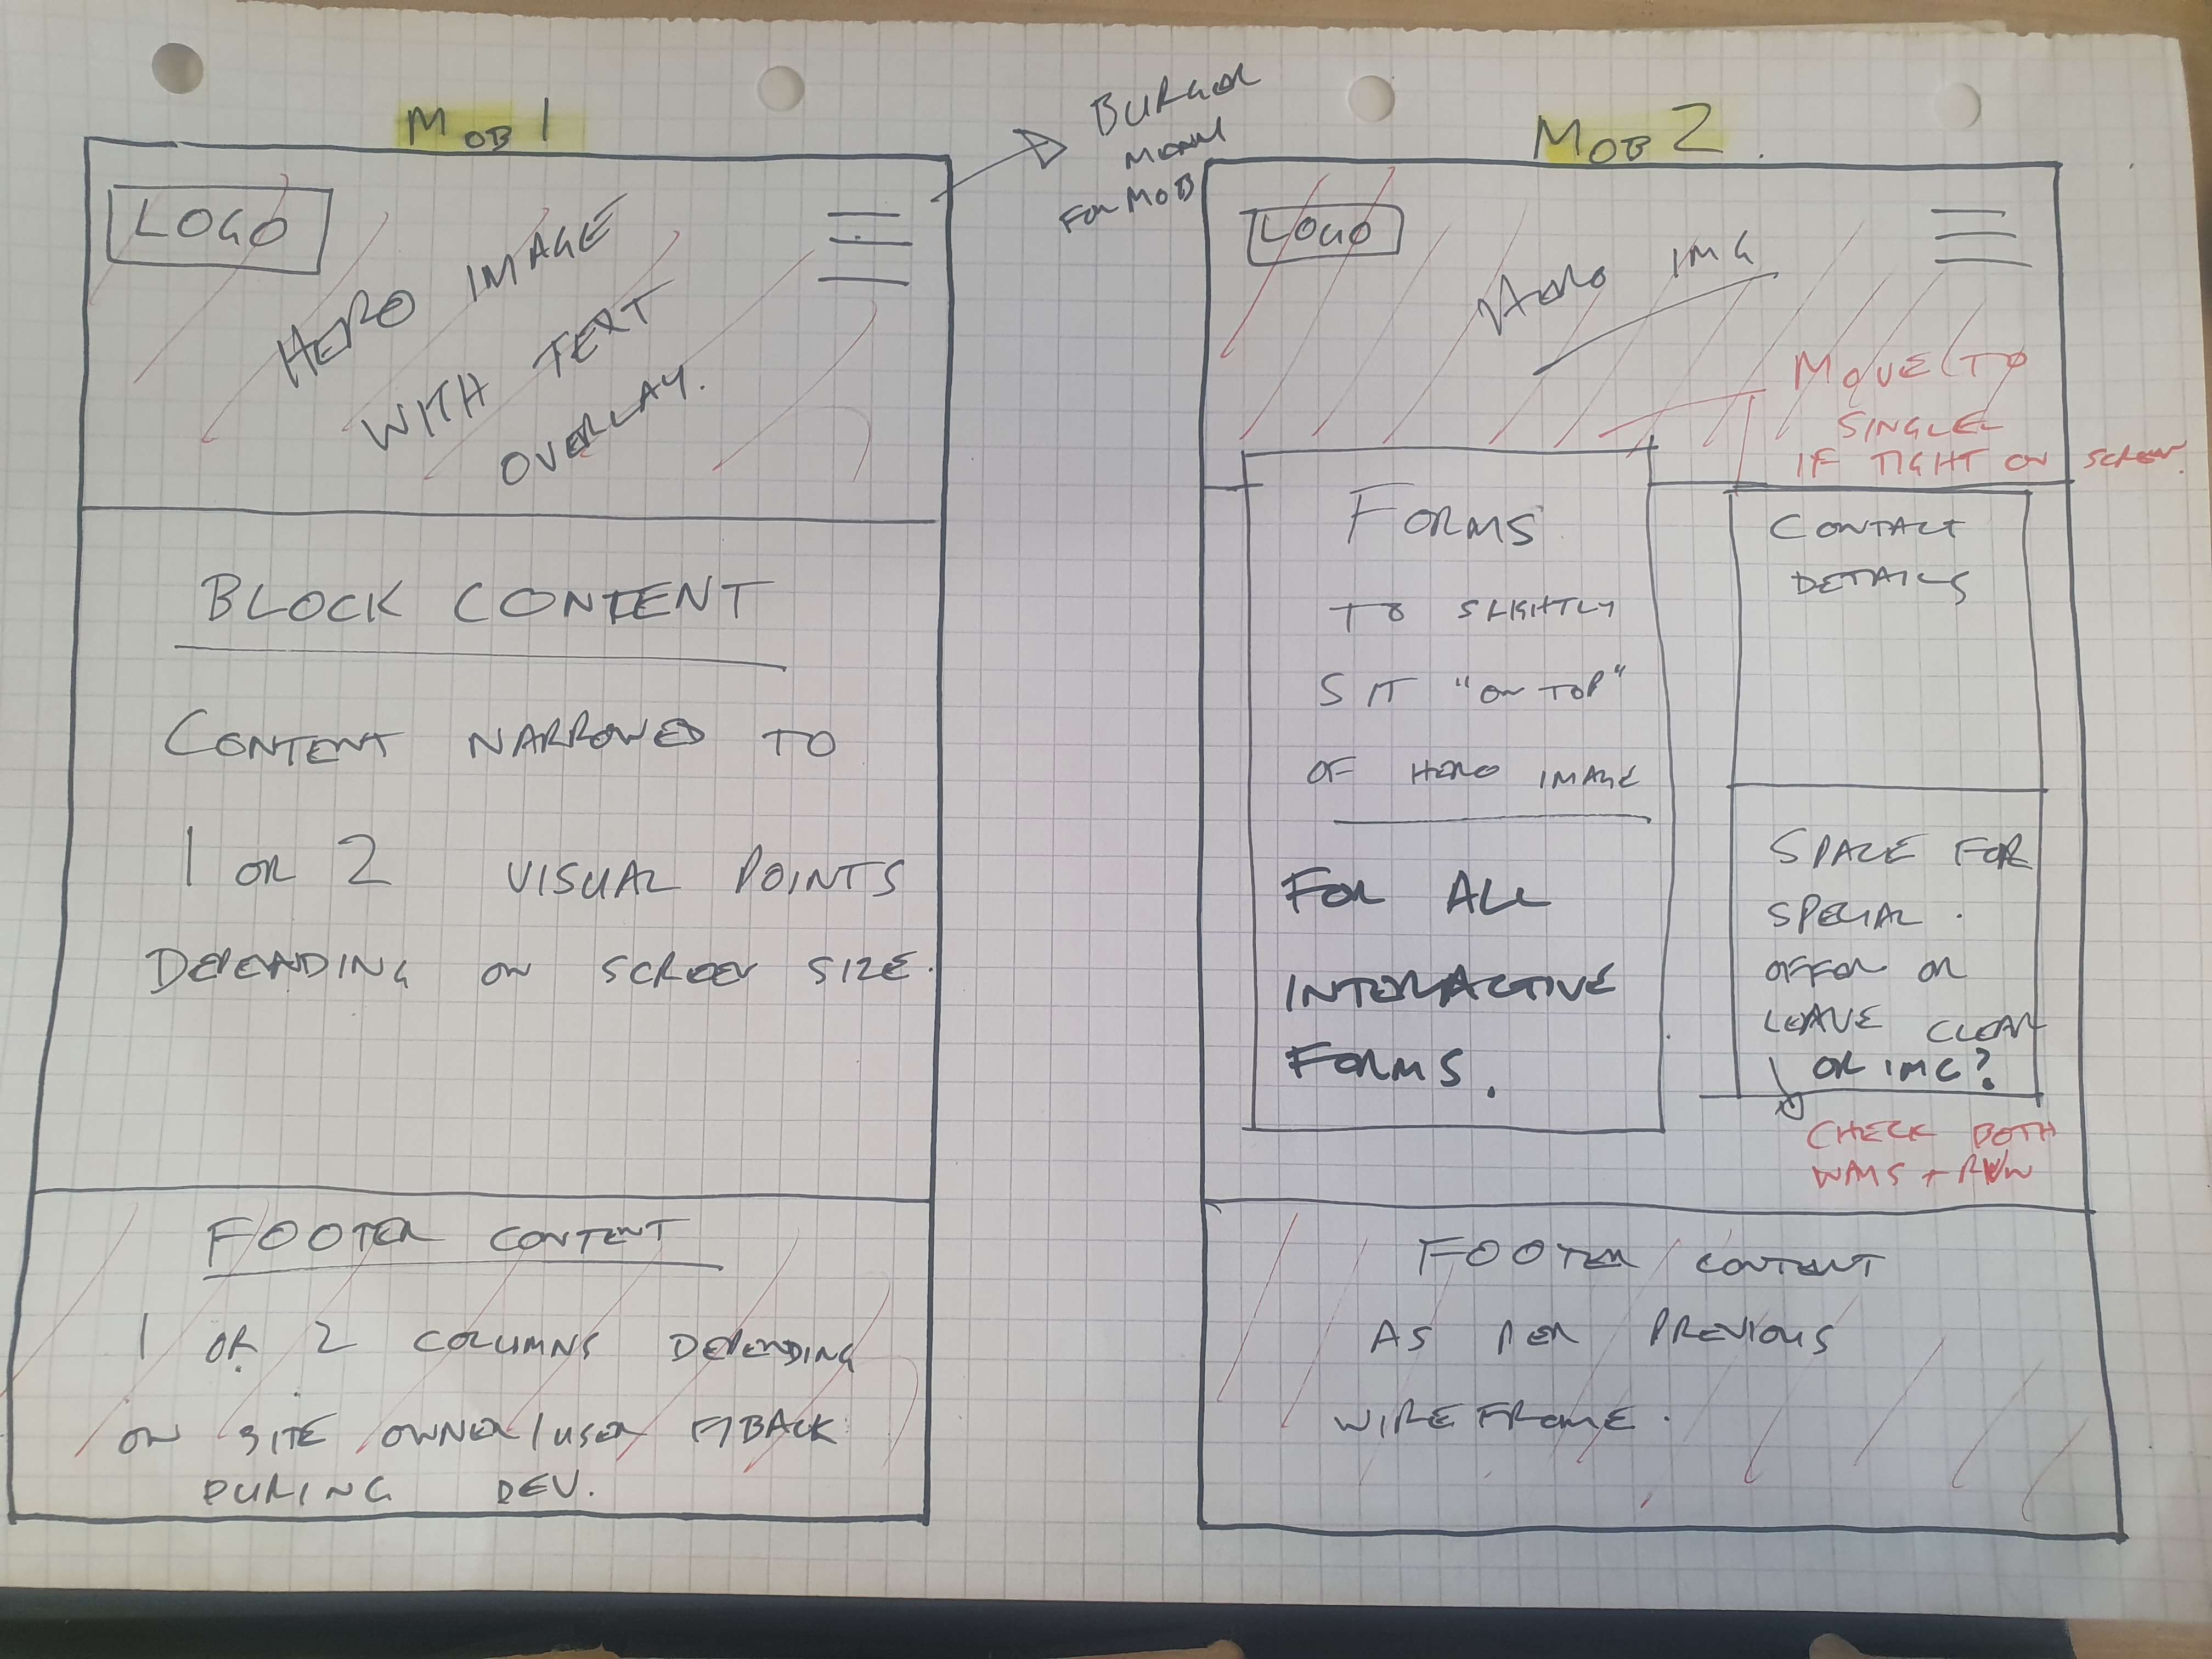 MOB 1
BURGER
MENU
FOR MOB
LOGO
HERO IMAGE
WITH TEXT
OVERLAY.
BLOCK CONTENT
CONTENT NARROWED TO
1 OR 2 VISUAL POINTS
DEPENDING ON SCREEN SIZE.
FOOTER CONTENT
1 OR 2 COLUMNS DEPENDING
ON SITE OWNER/USER F/BACK
DURING DEV.
MOB 2.
LOGO
HERO IMG
MOVE TO
SINGLE
IF TIGHT ON SCREEN.
FORMS
TO SLIGHTLY
SIT "ON TOP"
OF HERO IMAGE
FOR ALL
INTERACTIVE
FORMS.
CONTACT
DETAILS
SPACE FOR
SPECIAL.
OFFER OR
LEAVE CLEAR
OR IMG?
CHECK BOTH
WAYS +
FOOTER CONTENT
AS PER PREVIOUS
WIREFRAME.